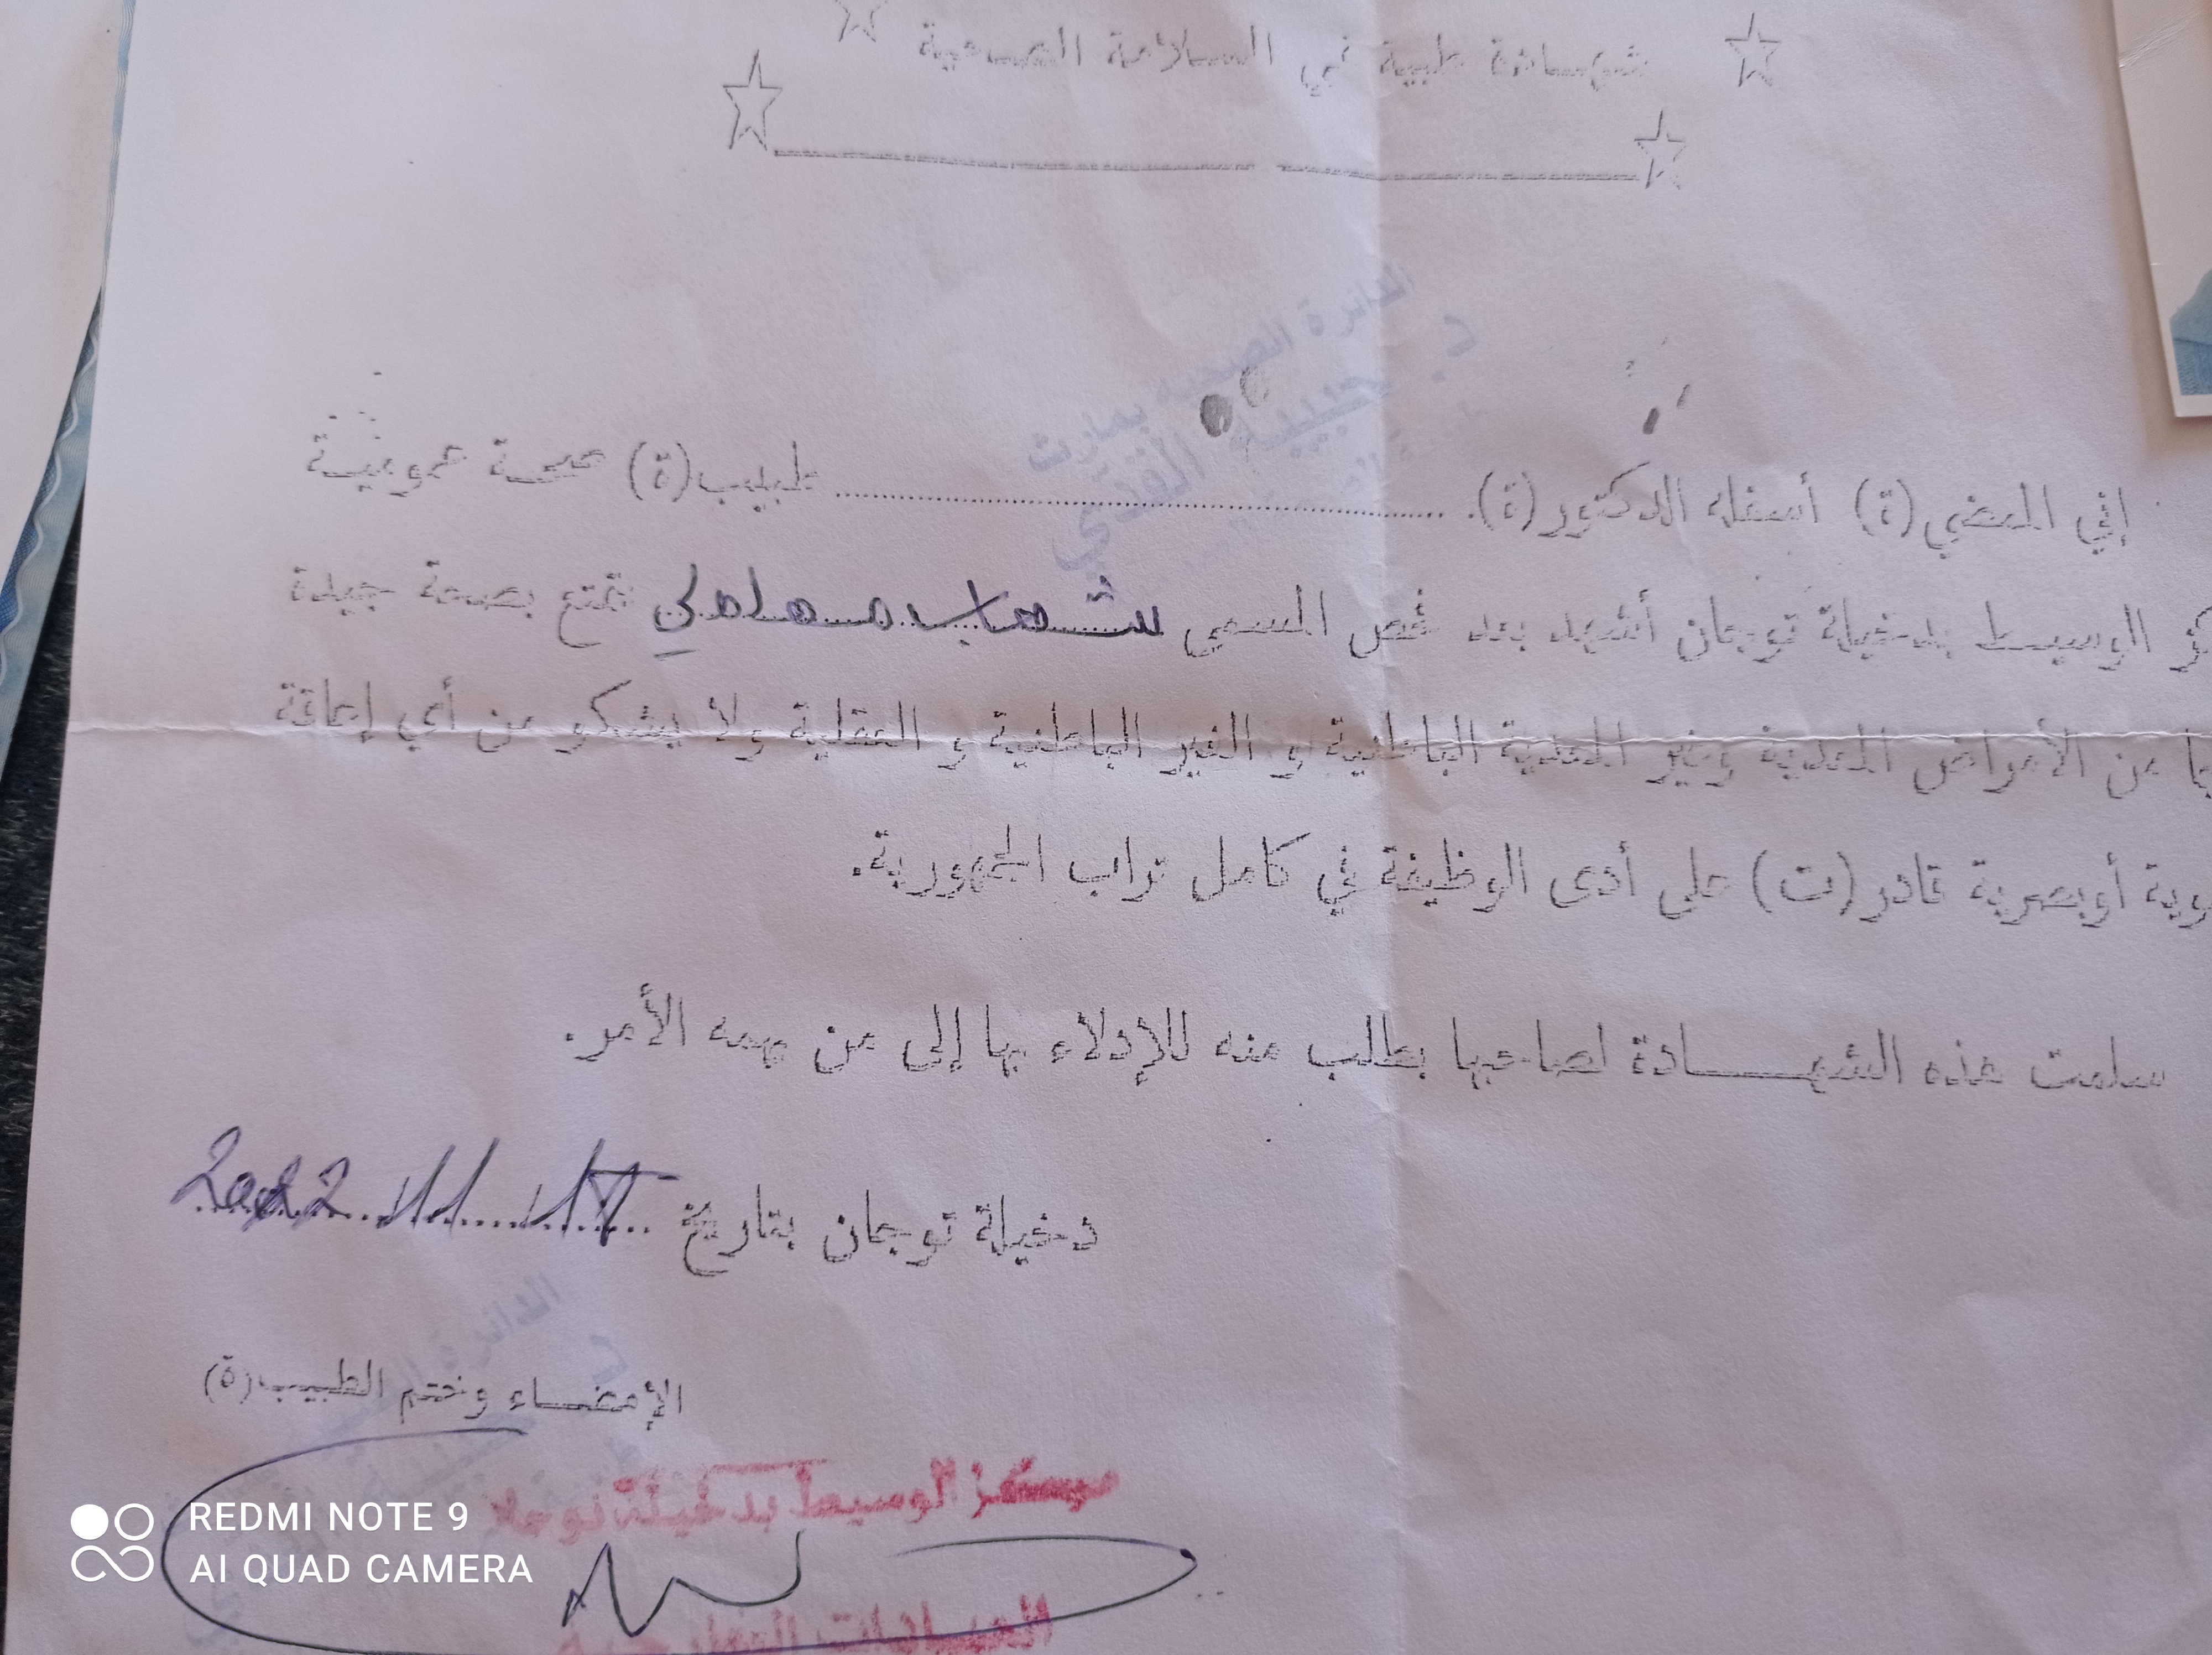 شهادة طبية في السلامة الصحية
الدائرة الصحية بمارث
د. حبيبة القدي
إني الممضي(ة) أسفله الدكتور(ة). طبيب(ة) صحة عمومية
الوسيط بدخيلة توجان أشهد بعد فحص المسمى شهاب معاملي تمتع بصحة جيدة
من الأمراض المعدية وغير المعدية الباطنية و الغير الباطنية و العقلية ولا يشكو من أي إعاقة
أوبصرية قادر(ت) على أدى الوظيفة في كامل تراب الجمهورية.
سلمت هذه الشهـــــادة لصاحبها بطلب منه للإدلاء بها إلى من يهمه الأمر.
دخيلة توجان بتاريخ 2022
الإمضـاء وختم الطبيب(ة)
مركز الوسيط بدخيلة توجان
العيادات الخارجية
REDMI NOTE 9
AI QUAD CAMERA